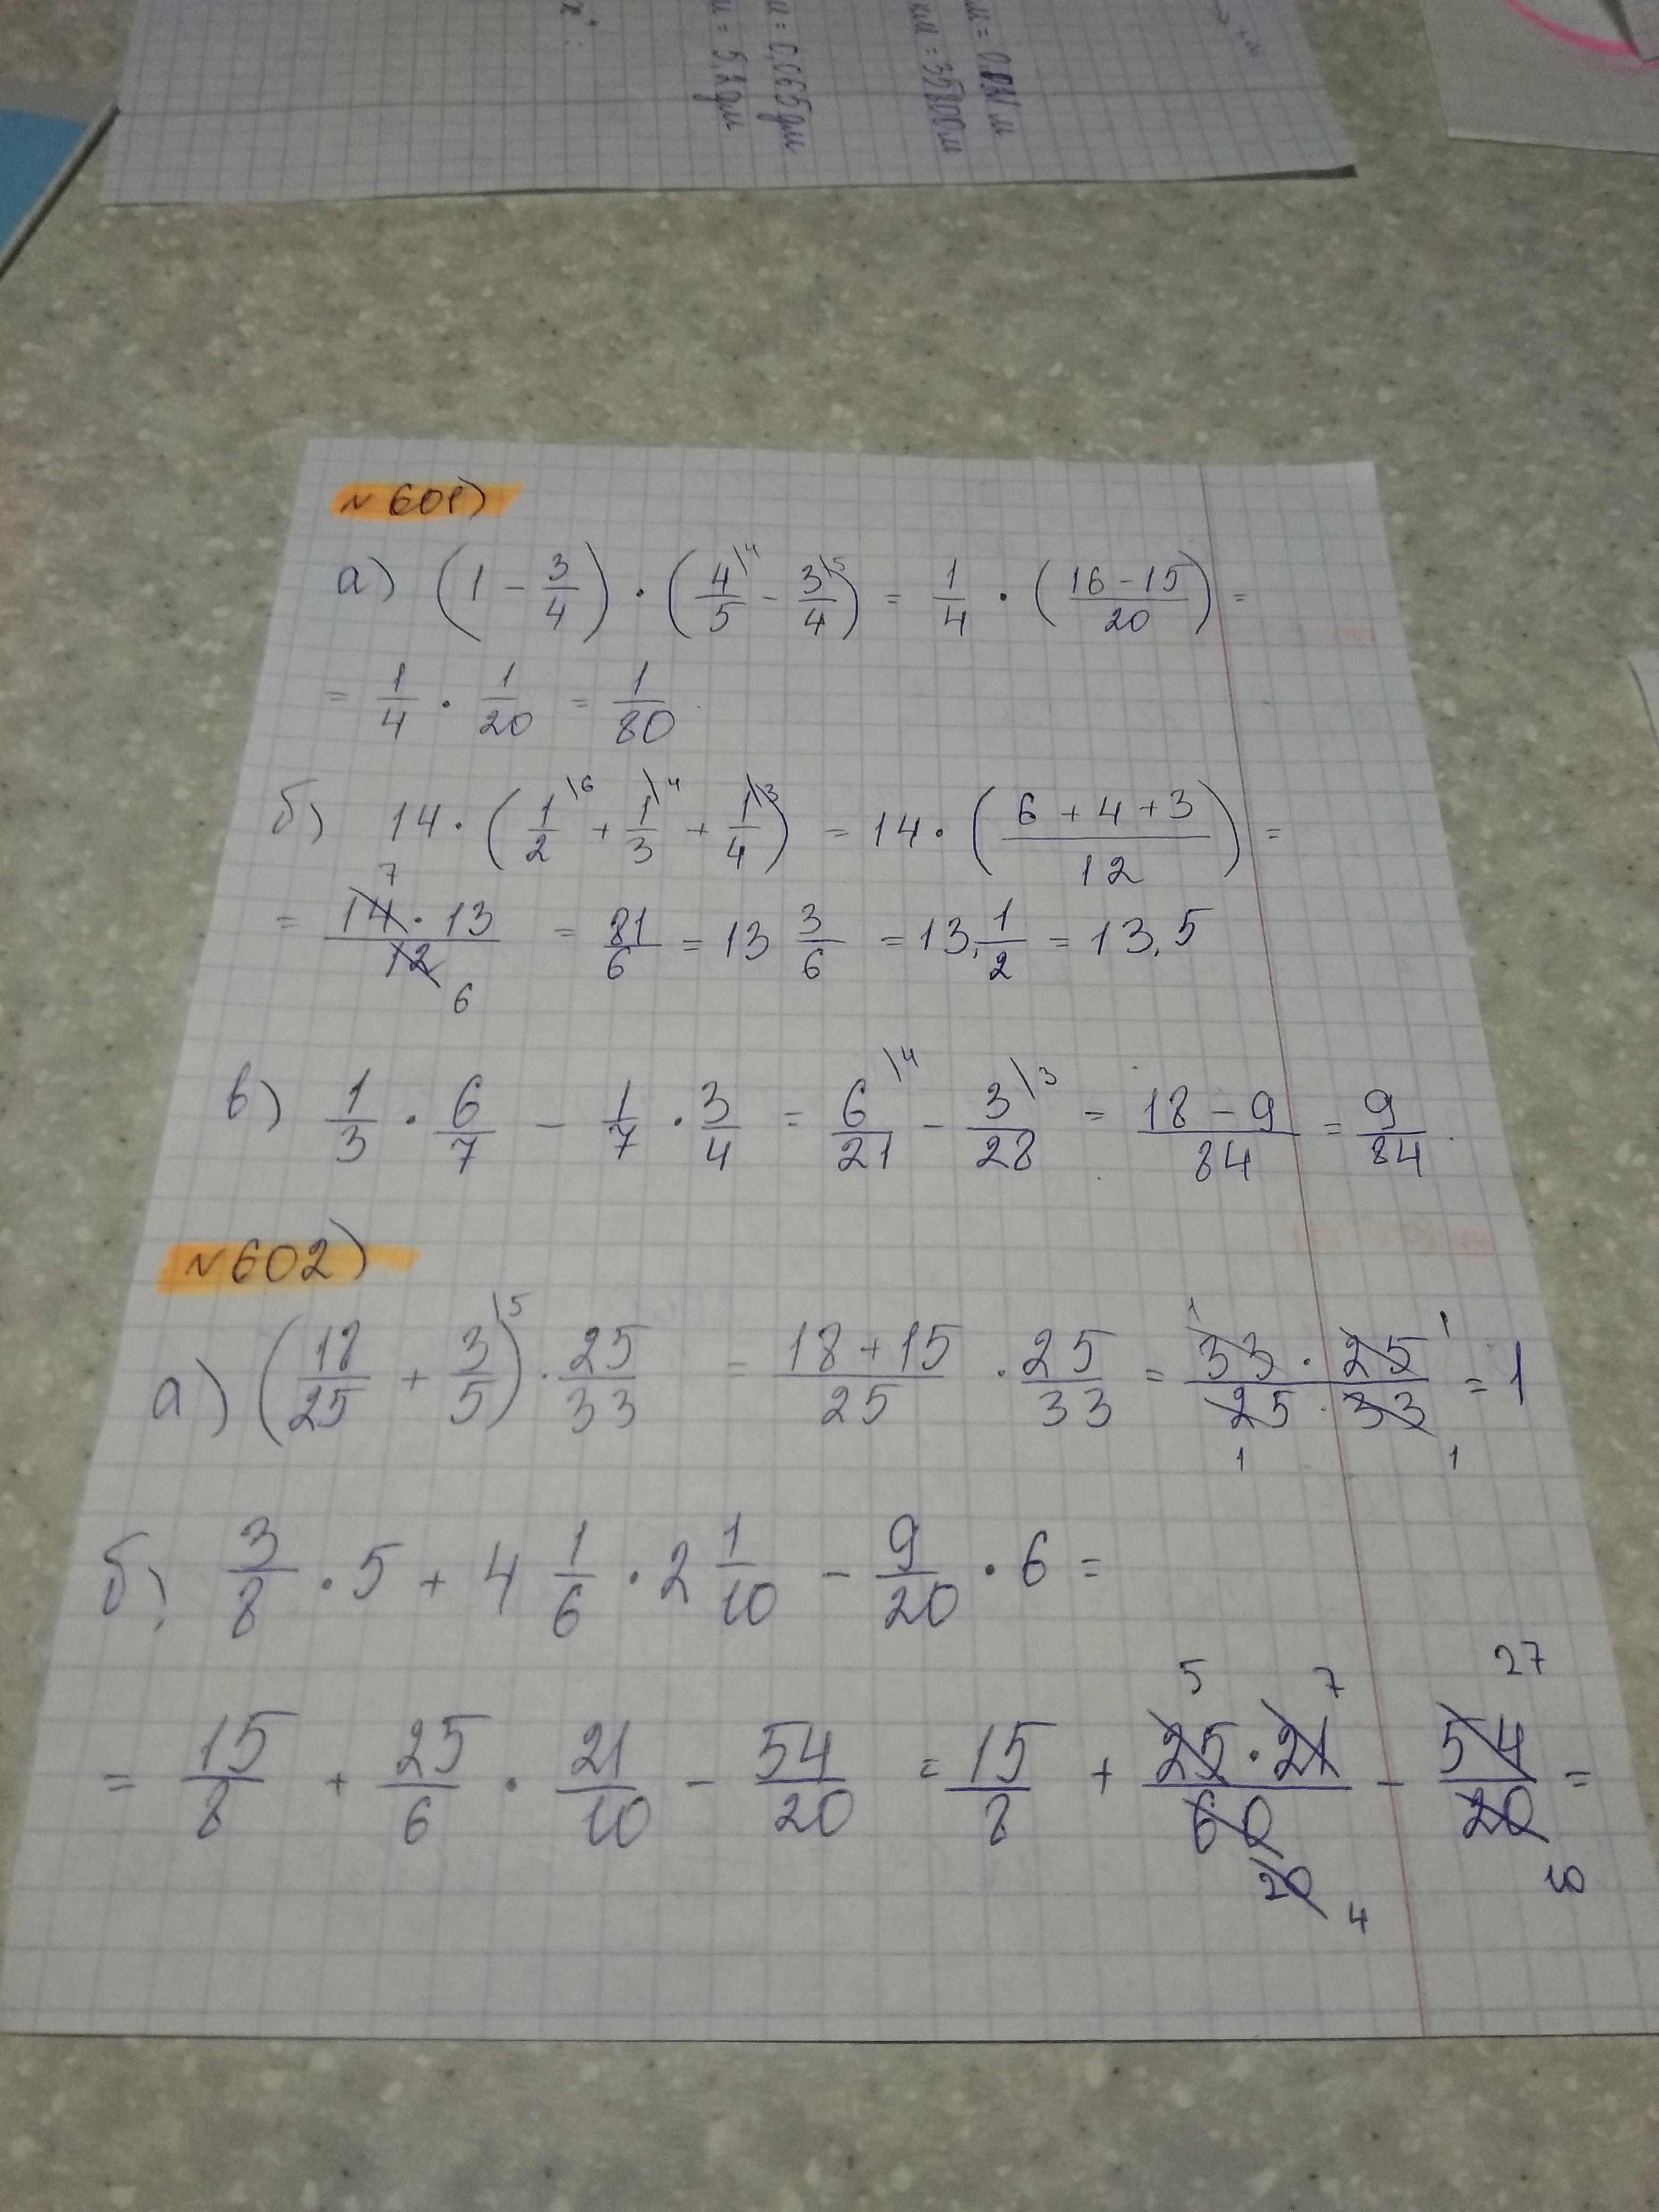 м = 0,065 дм
м = 5,8 дм
км = 35800 м
№ 601)
а) (1 - 3/4) · (4/5 \4 - 3/4 \5) = 1/4 · ((16 - 15)/20) =
= 1/4 · 1/20 = 1/80
б) 14 · (1/2 \6 + 1/3 \4 + 1/4 \3) = 14 · ((6 + 4 + 3)/12) =
= (14 7 · 13)/(12 6) = 81/6 = 13 3/6 = 13,1/2 = 13,5
в) 1/3 · 6/7 - 1/7 · 3/4 = 6/21 \4 - 3/28 \3 = (18 - 9)/84 = 9/84
№ 602)
а) (18/25 + 3/5) \5 · 25/33 = (18 + 15)/25 · 25/33 = (33 1 · 25 1)/(25 1 · 33 1) = 1
б) 3/8 · 5 + 4 1/6 · 2 1/10 - 9/20 · 6 =
= 15/8 + 25/6 · 21/10 - 54/20 = 15/8 + (25 5 · 21 7)/(60 20 4) - 54 27/20 10 =